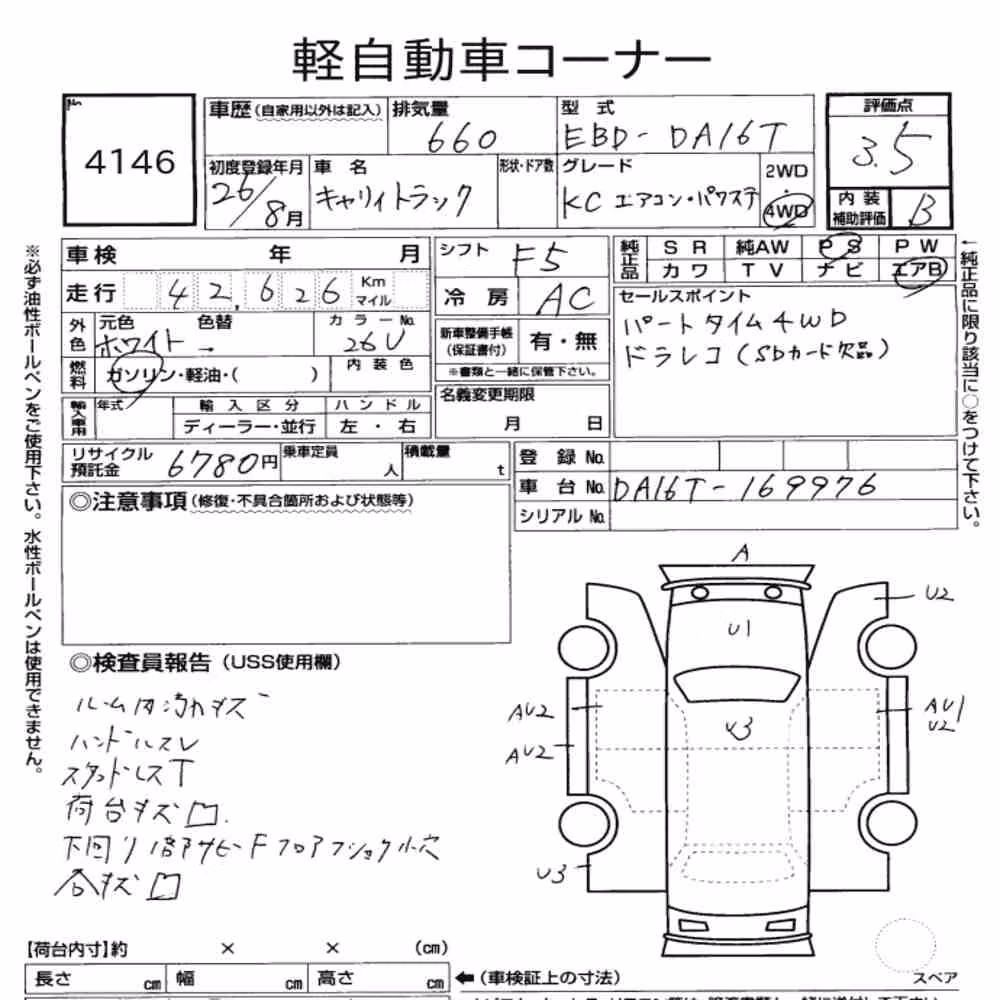 軽自動車コーナー
4146
車歴(自家用以外は記入) 排気量 型式 評価点
660 EBD-DA16T 3.5
初度登録年月 車名 形状・ドア数 グレード 2WD・4WD 内装補助評価
26/8月 キャリイトラック KC エアコン・パワステ B
車検 年 月 シフト F5
走行 42,626 Km マイル 冷房 AC
純正品 SR 純AW PS PW
カワ TV ナビ エアB
外色 元色 色替 カラーNo.
ホワイト → 26U
新車整備手帳(保証書付) 有・無
※書類と一緒に保管下さい。
燃料 ガソリン・軽油・( ) 内装色
セールスポイント
パートタイム4WD
ドラレコ(SDカード欠品)
輸入車用 年式 輸入区分 ハンドル
ディーラー・並行 左・右
名義変更期限
月 日
リサイクル預託金 6780円 乗車定員 人 積載量 t
登録No.
車台No. DA16T-169976
シリアルNo.
◎注意事項(修復・不具合箇所および状態等)
※必ず油性ボールペンをご使用下さい。水性ボールペンは使用できません。
←純正品に限り該当に○をつけて下さい。
◎検査員報告(USS使用欄)
ルーム内汚れキズ
ハンドルスレ
スタッドレスT
荷台キズ凹.
下回り1部サビーFフロアフショク小穴
各キズ凹
A
U2
U1
AU2
U3
AU1
U2
AU2
U3
スペア
【荷台内寸】約 × × (cm)
長さ cm 幅 cm 高さ cm ←(車検証上の寸法)